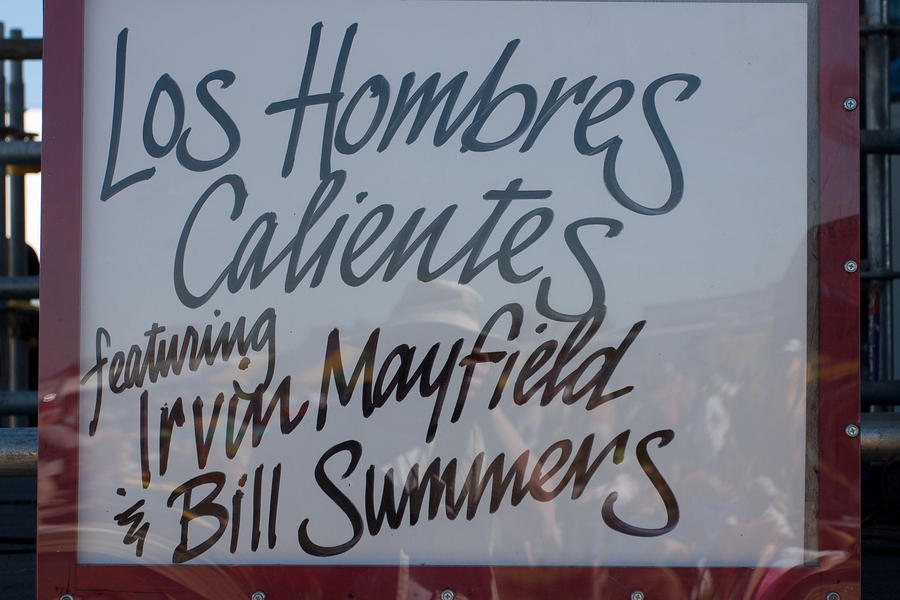 Los Hombres
Calientes
featuring
Irvin Mayfield
& Bill Summers